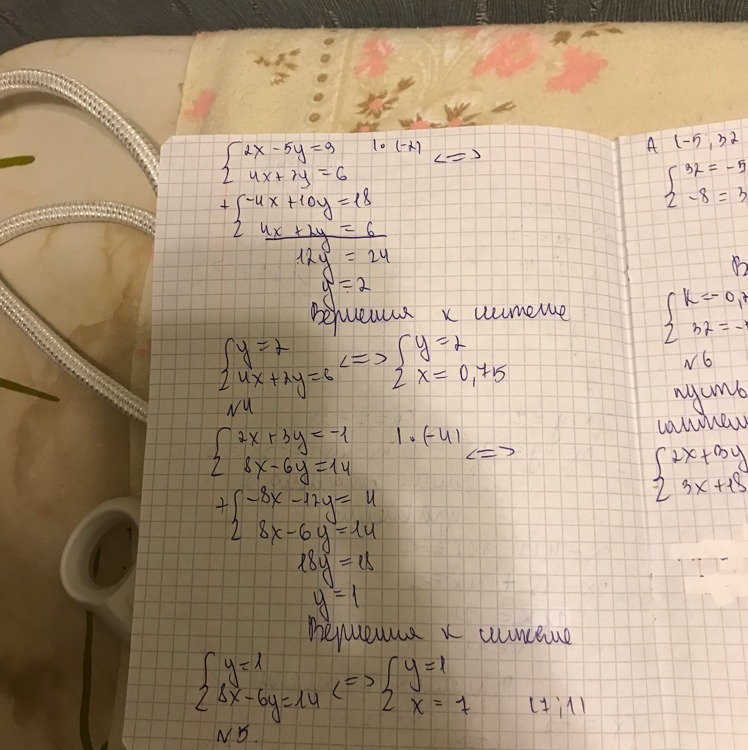 { 2x - 5y = 9 | · (-2)
4x + 2y = 6 <=>
+ { -4x + 10y = 18
4x + 2y = 6
12y = 24
y = 2
Вернемся к системе
{ y = 2
4x + 2y = 6 <=> { y = 2
x = 0,75
N4
{ 2x + 3y = -1 | · (-4)
8x - 6y = 14 <=>
+ { -8x - 12y = 4
8x - 6y = 14
18y = 18
y = 1
Вернемся к системе
{ y = 1
8x - 6y = 14 <=> { y = 1
x = 7 (7; 1)
N5.
A (-5; 32
{ 32 = -5
-8 = 3
{ K = -0,
32 = -
N6
пусть
{ 2x + 3y
3x + 18